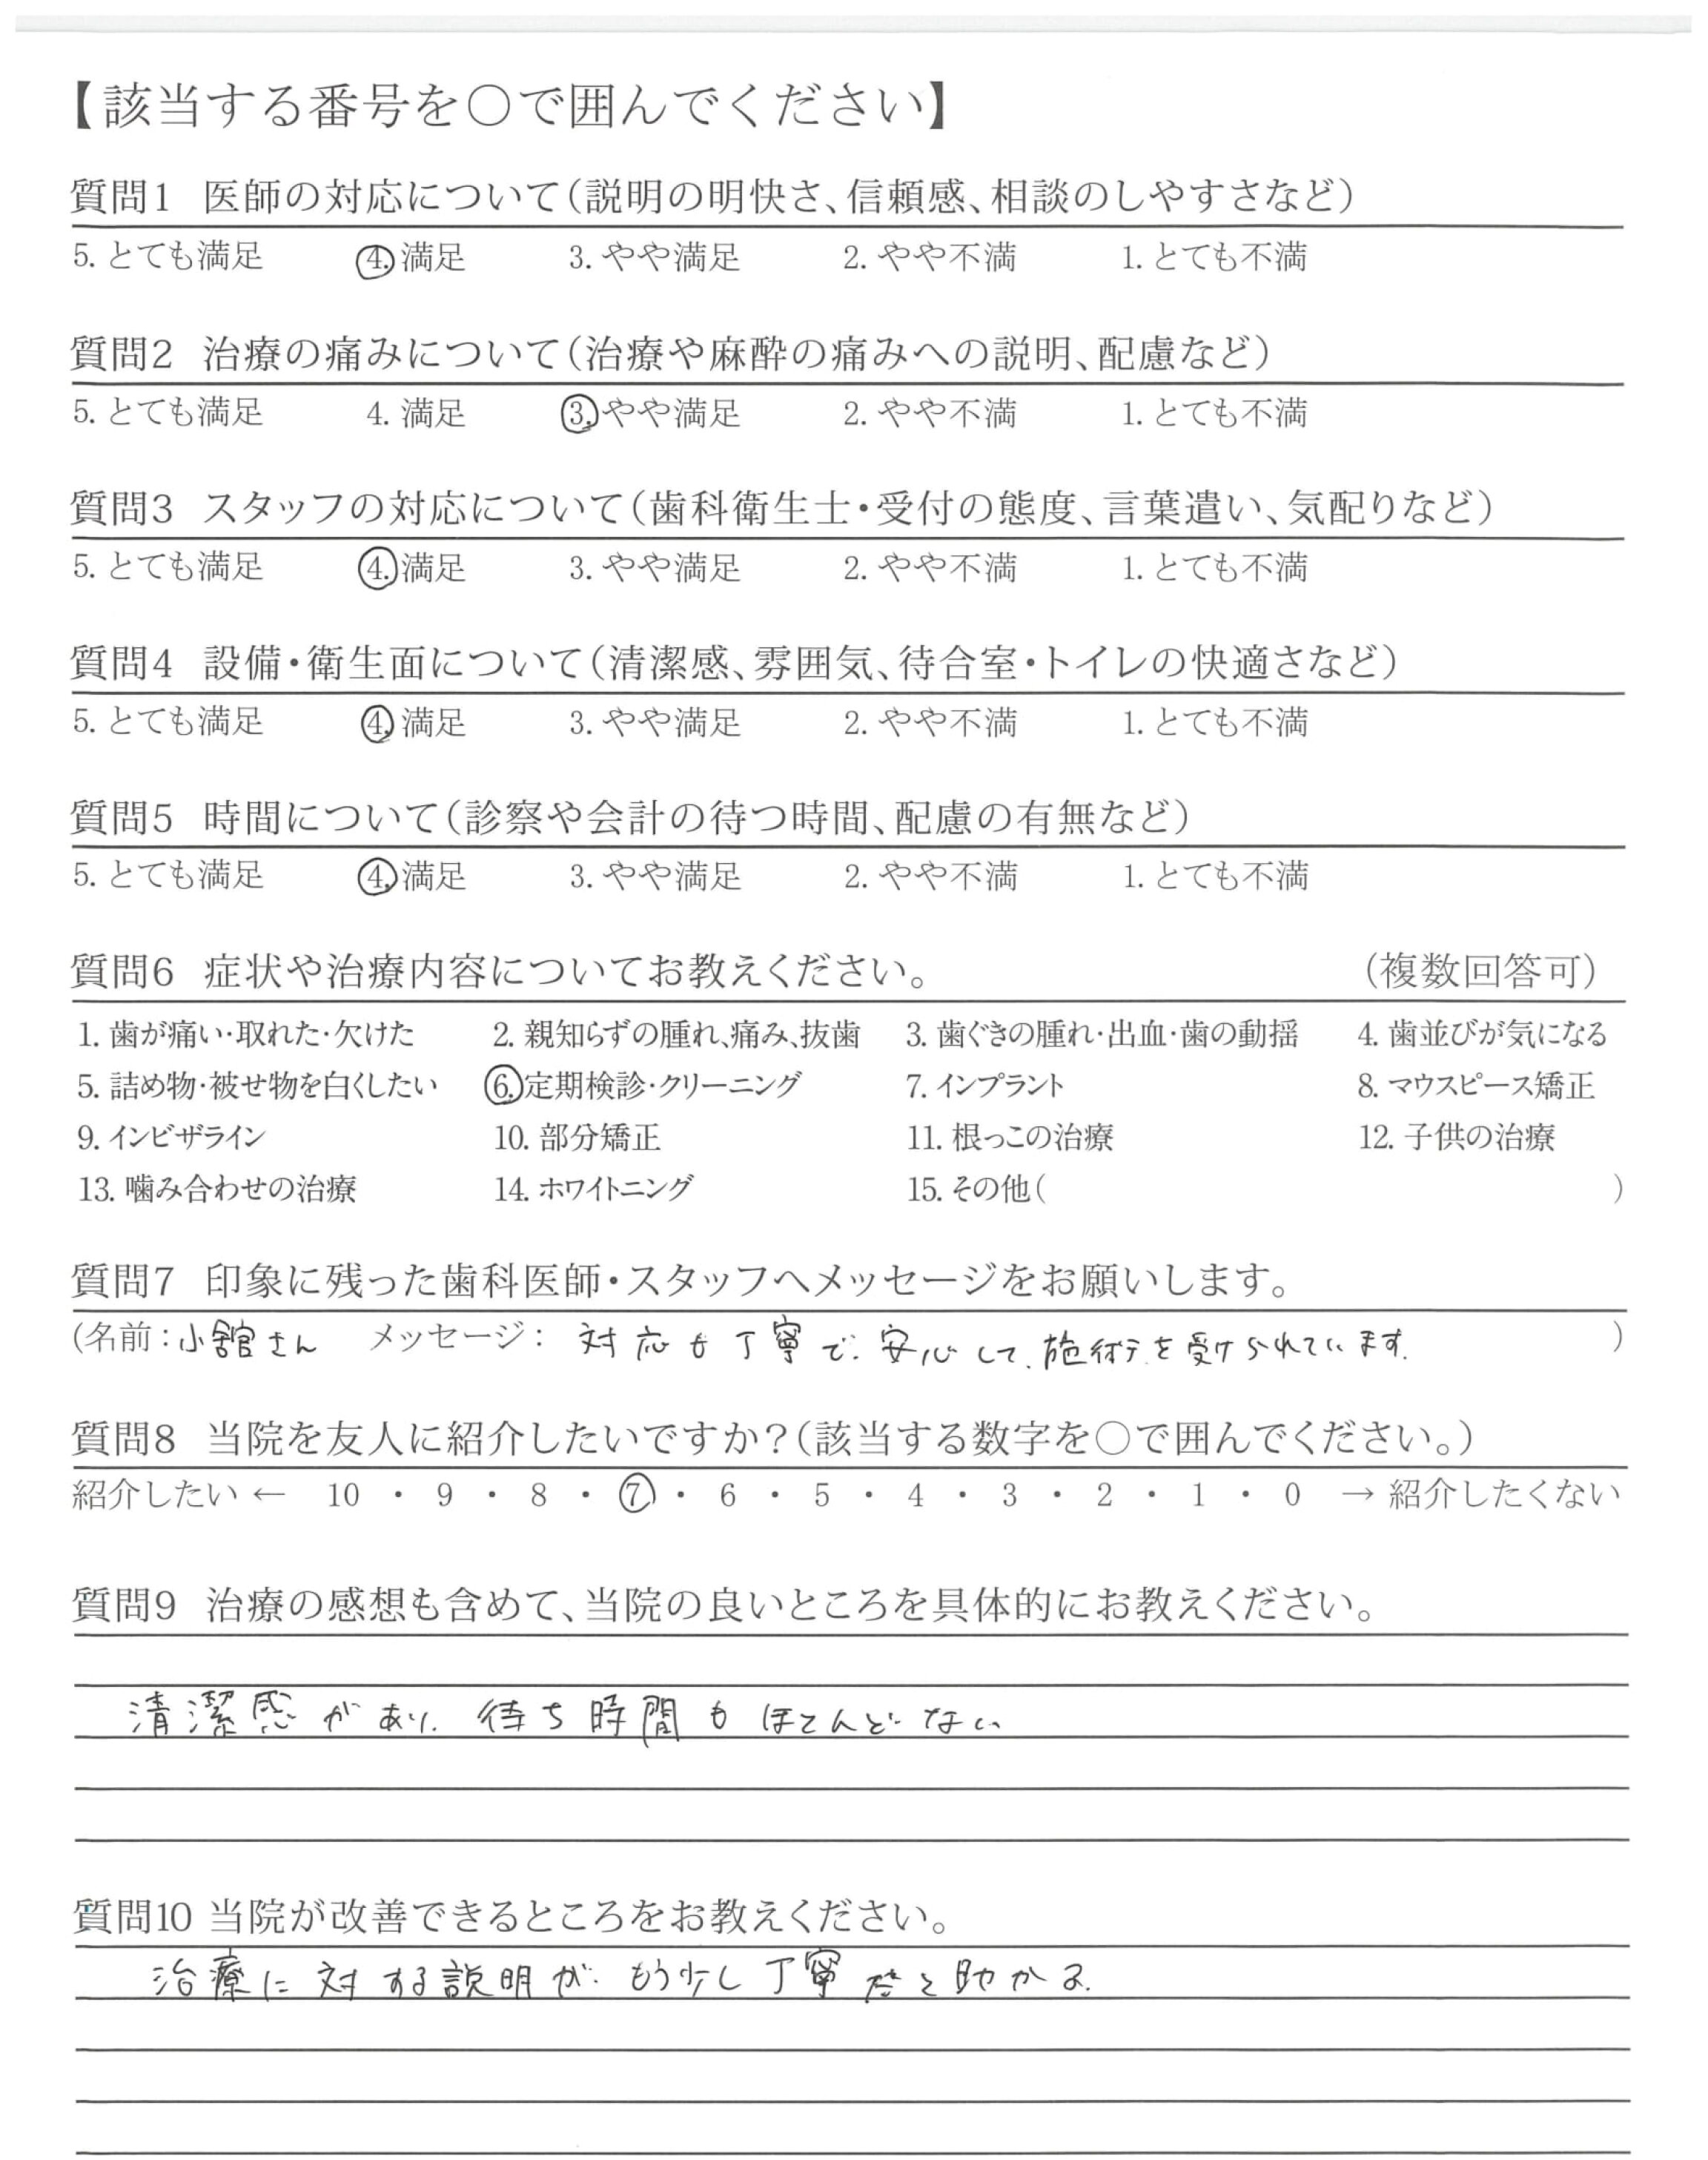 【該当する番号を○で囲んでください】
質問1 医師の対応について(説明の明快さ、信頼感、相談のしやすさなど)
5. とても満足 4. 満足 3. やや満足 2. やや不満 1. とても不満
質問2 治療の痛みについて(治療や麻酔の痛みへの説明、配慮など)
5. とても満足 4. 満足 3. やや満足 2. やや不満 1. とても不満
質問3 スタッフの対応について(歯科衛生士・受付の態度、言葉遣い、気配りなど)
5. とても満足 4. 満足 3. やや満足 2. やや不満 1. とても不満
質問4 設備・衛生面について(清潔感、雰囲気、待合室・トイレの快適さなど)
5. とても満足 4. 満足 3. やや満足 2. やや不満 1. とても不満
質問5 時間について(診察や会計の待つ時間、配慮の有無など)
5. とても満足 4. 満足 3. やや満足 2. やや不満 1. とても不満
質問6 症状や治療内容についてお教えください。 (複数回答可)
1. 歯が痛い・取れた・欠けた 2. 親知らずの腫れ、痛み、抜歯 3. 歯ぐきの腫れ・出血・歯の動揺 4. 歯並びが気になる
5. 詰め物・被せ物を白くしたい 6. 定期検診・クリーニング 7. インプラント 8. マウスピース矯正
9. インビザライン 10. 部分矯正 11. 根っこの治療 12. 子供の治療
13. 噛み合わせの治療 14. ホワイトニング 15. その他( )
質問7 印象に残った歯科医師・スタッフへメッセージをお願いします。
(名前：小舘さん メッセージ： 対応も丁寧で、安心して、施術を受けられています。 )
質問8 当院を友人に紹介したいですか？(該当する数字を○で囲んでください。)
紹介したい ← 10 ・ 9 ・ 8 ・ 7 ・ 6 ・ 5 ・ 4 ・ 3 ・ 2 ・ 1 ・ 0 → 紹介したくない
質問9 治療の感想も含めて、当院の良いところを具体的にお教えください。
清潔感があり、待ち時間もほとんどない
質問10 当院が改善できるところをお教えください。
治療に対する説明が、もう少し丁寧だと助かる。